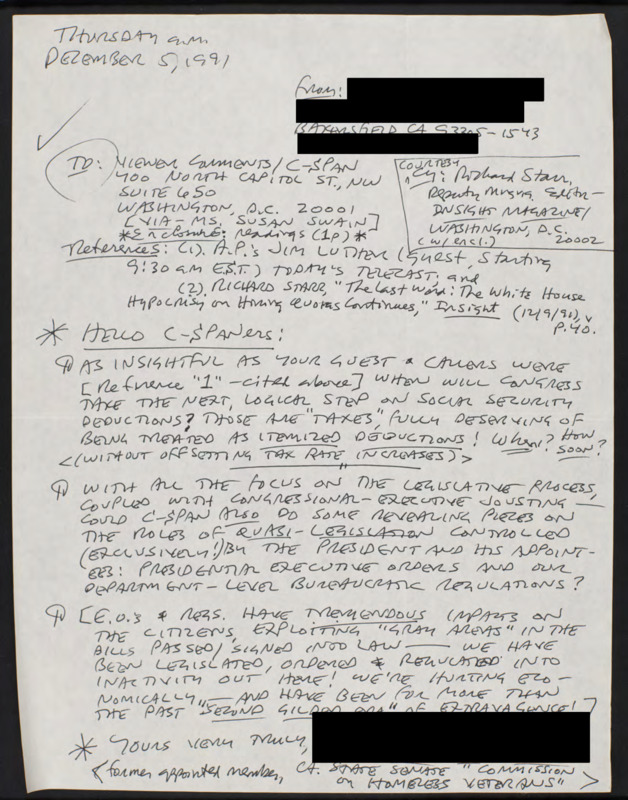 THURSDAY a.m.
DEZEMBER 5, 1991
From:
BAKERSFIELD CA 93305-1543
TO: VIEWER COMMENTS/C-SPAN
400 NORTH CAPITOL ST., NW
SUITE 650
WASHINGTON, D.C. 20001
[VIA-MS. SUSAN SWAIN]
*Enclosure: readings (1p)*
COURTESY
cy: Richard Starr,
Deputy Mng'ng Editor-
INSIGHT MAGAZINE/
WASHINGTON, D.C.
(w/encl.) 20002
References: (1). A.P.'s JIM LUTHER (Guest, Starting
9:30 am E.S.T.) TODAY'S TELECAST; and
(2). RICHARD STARR, "The Last Word: The White House
Hypocrisy on Hiring Quotas Continues," Insight (12/9/91),
p.40.
* HELLO C-SPANers:
¶ AS INSIGHTFUL AS YOUR GUEST & CALLERS WERE
[Reference "1"-cited above] WHEN WILL CONGRESS
TAKE THE NEXT, LOGICAL STEP ON SOCIAL SECURITY
DEDUCTIONS? THOSE ARE "TAXES", FULLY DESERVING OF
BEING TREATED AS ITEMIZED DEDUCTIONS! When? How
soon?
<(WITHOUT OFFSETTING TAX RATE INCREASES)>
¶ WITH ALL THE FOCUS ON THE LEGISLATIVE PROCESS,
COUPLED WITH CONGRESSIONAL-EXECUTIVE JOUSTING—
COULD C-SPAN ALSO DO SOME REVEALING PIECES ON
THE ROLES OF QUASI-LEGISLATION CONTROLLED
(EXCLUSIVELY!) BY THE PRESIDENT AND HIS APPOINT-
EES: PRESIDENTIAL EXECUTIVE ORDERS AND OUR
DEPARTMENT-LEVEL BUREAUCRATIC REGULATIONS?
¶ [E.O.s & REGS. HAVE TREMENDOUS IMPACTS ON
THE CITIZENS, EXPLOITING "GRAY AREAS" IN THE
BILLS PASSED/SIGNED INTO LAW — WE HAVE
BEEN LEGISLATED, ORDERED & REGULATED INTO
INACTIVITY OUT HERE! WE'RE HURTING ECO-
NOMICALLY — AND HAVE BEEN FOR MORE THAN
THE PAST "SECOND GILDED ERA" OF EXTRAVAGANCE!]
* YOURS VERY TRULY,
<former appointed member, CA. STATE SENATE "COMMISSION
on HOMELESS VETERANS">